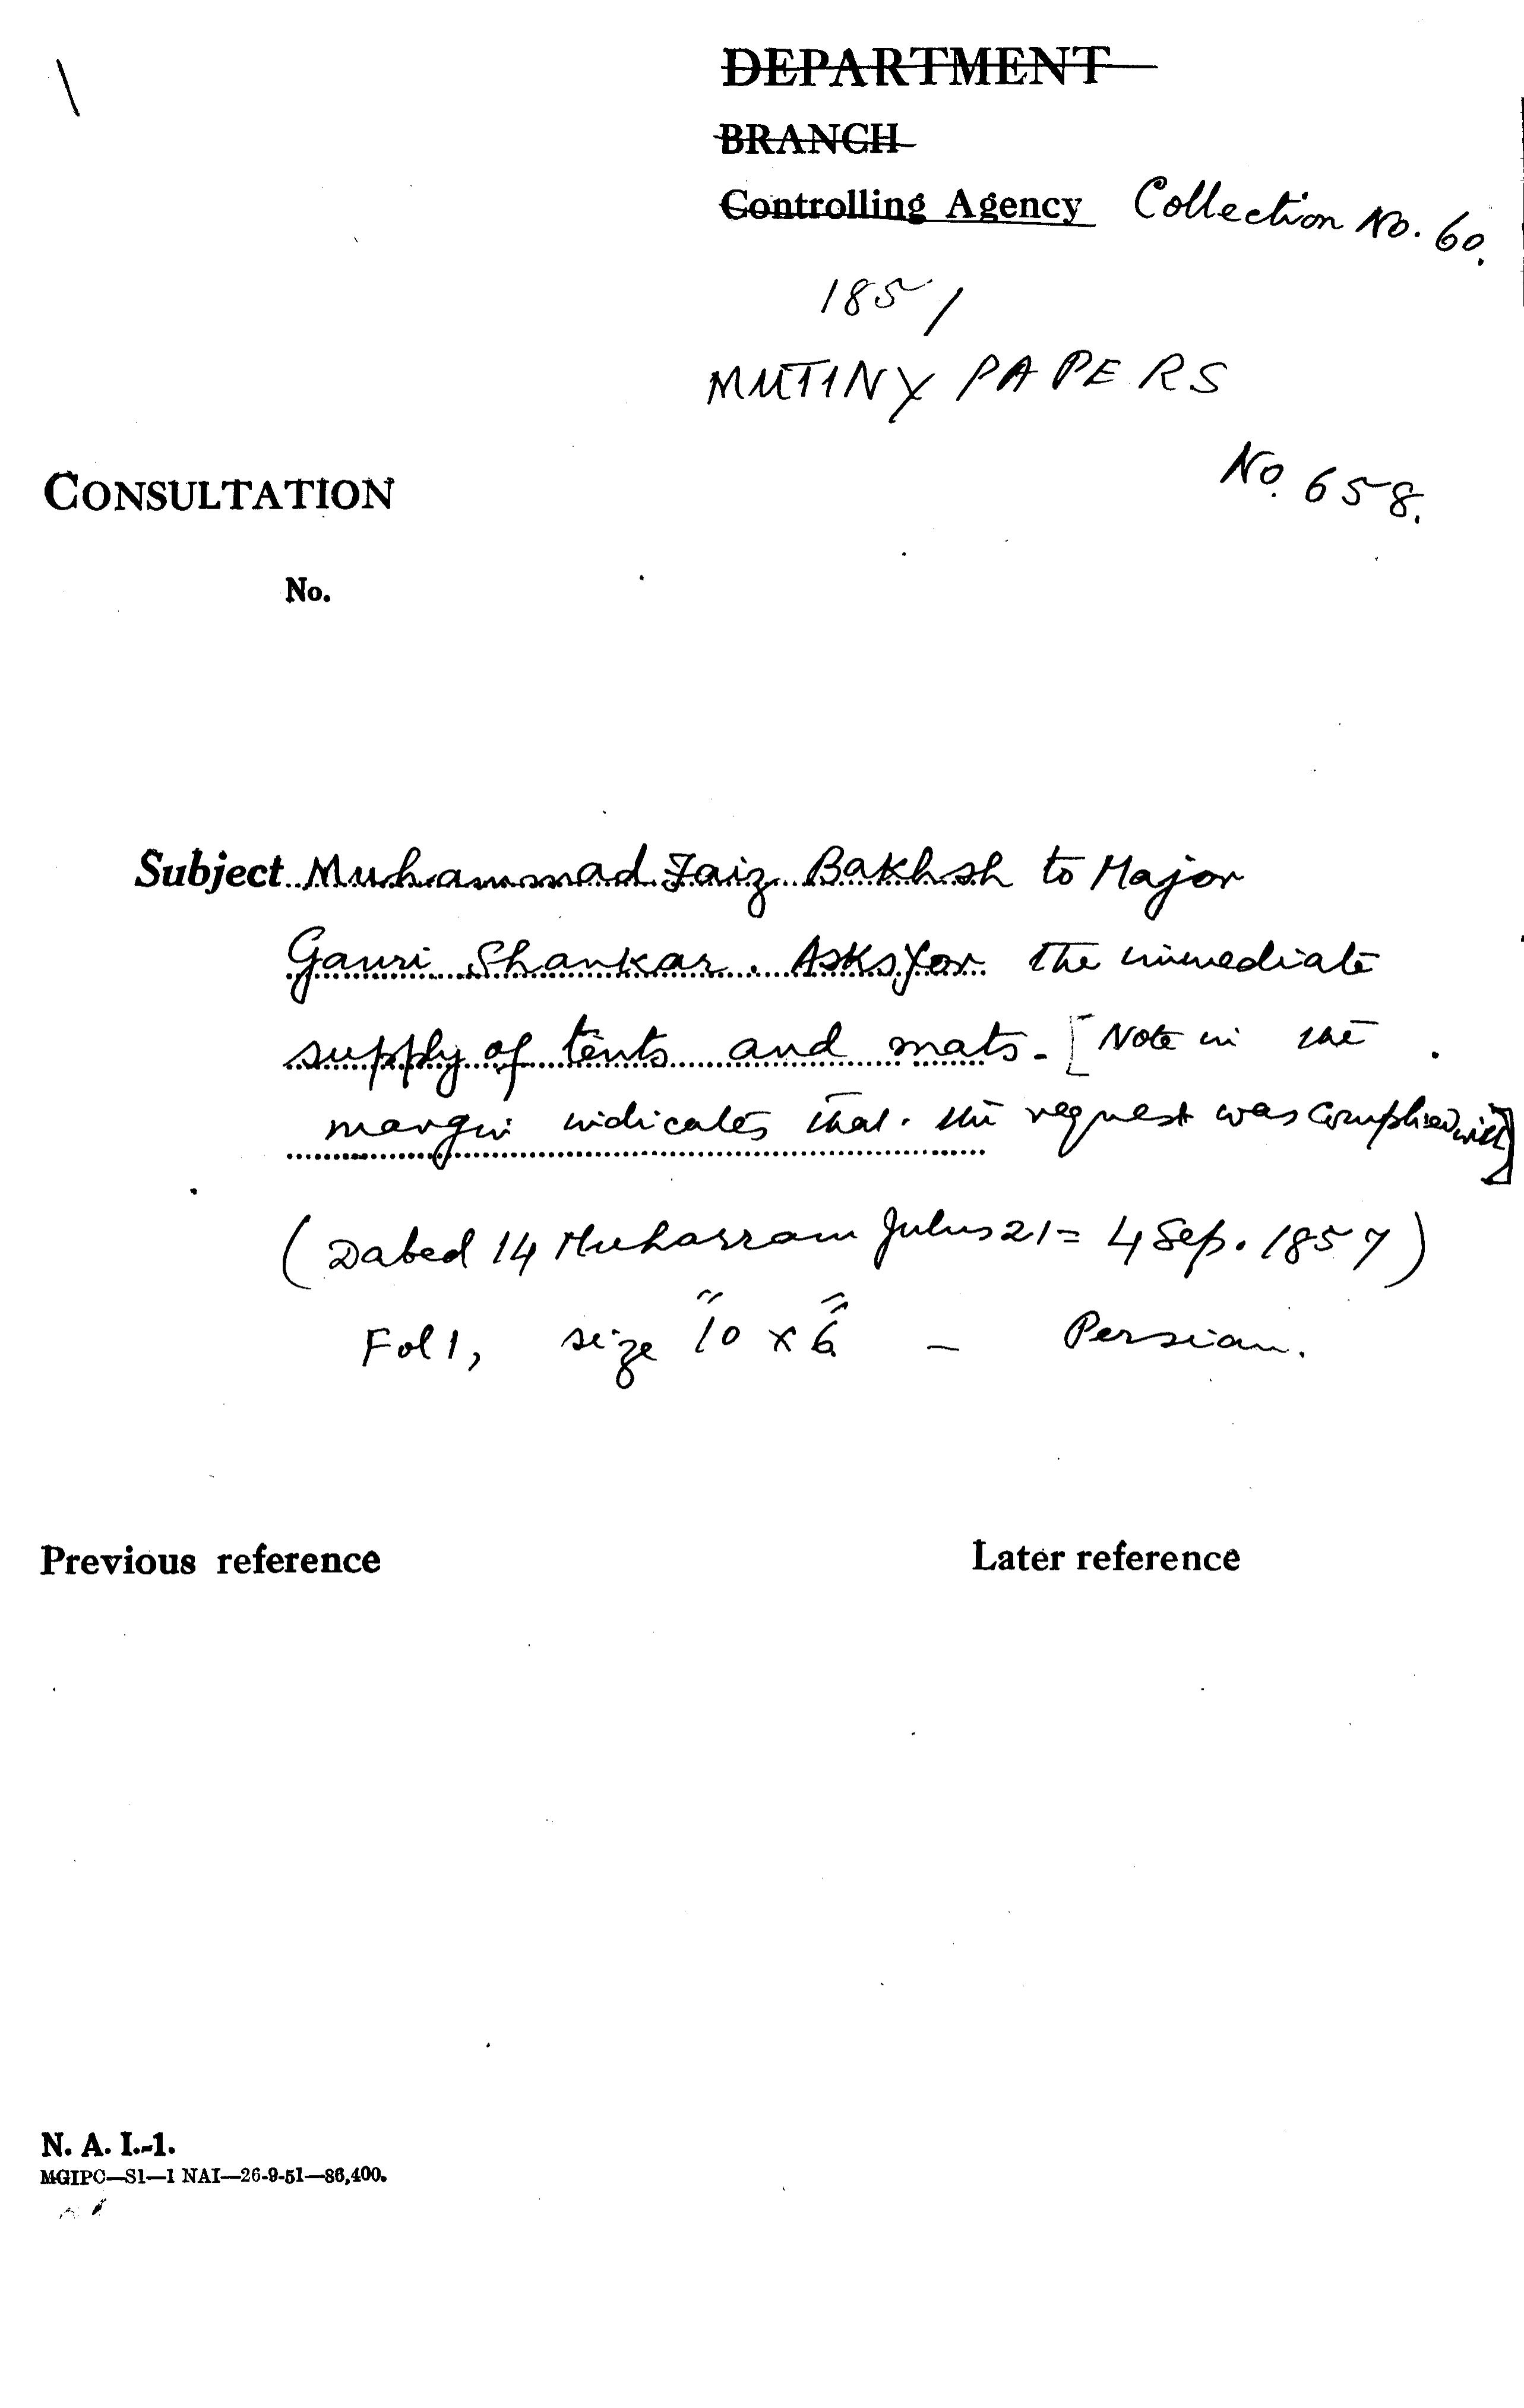 DEPARTMENT
BRANCH
Controlling Agency Collection No. 60.
1857
MUTINY PAPERS
No. 658.
CONSULTATION
No.
Subject Muhammad Faiz Bakhsh to Major
Gauri Shankar. Asks for the immediate
supply of tents and mats - [Note in the
margin indicates that the request was complied with]
(Dated 14 Muharram Julus 21 = 4 Sep. 1857)
Fol 1, size 10" x 6" - Persian.
Previous reference
Later reference
N. A. I.-1.
MGIPC—S1—1 NAI—26-9-51—86,400.